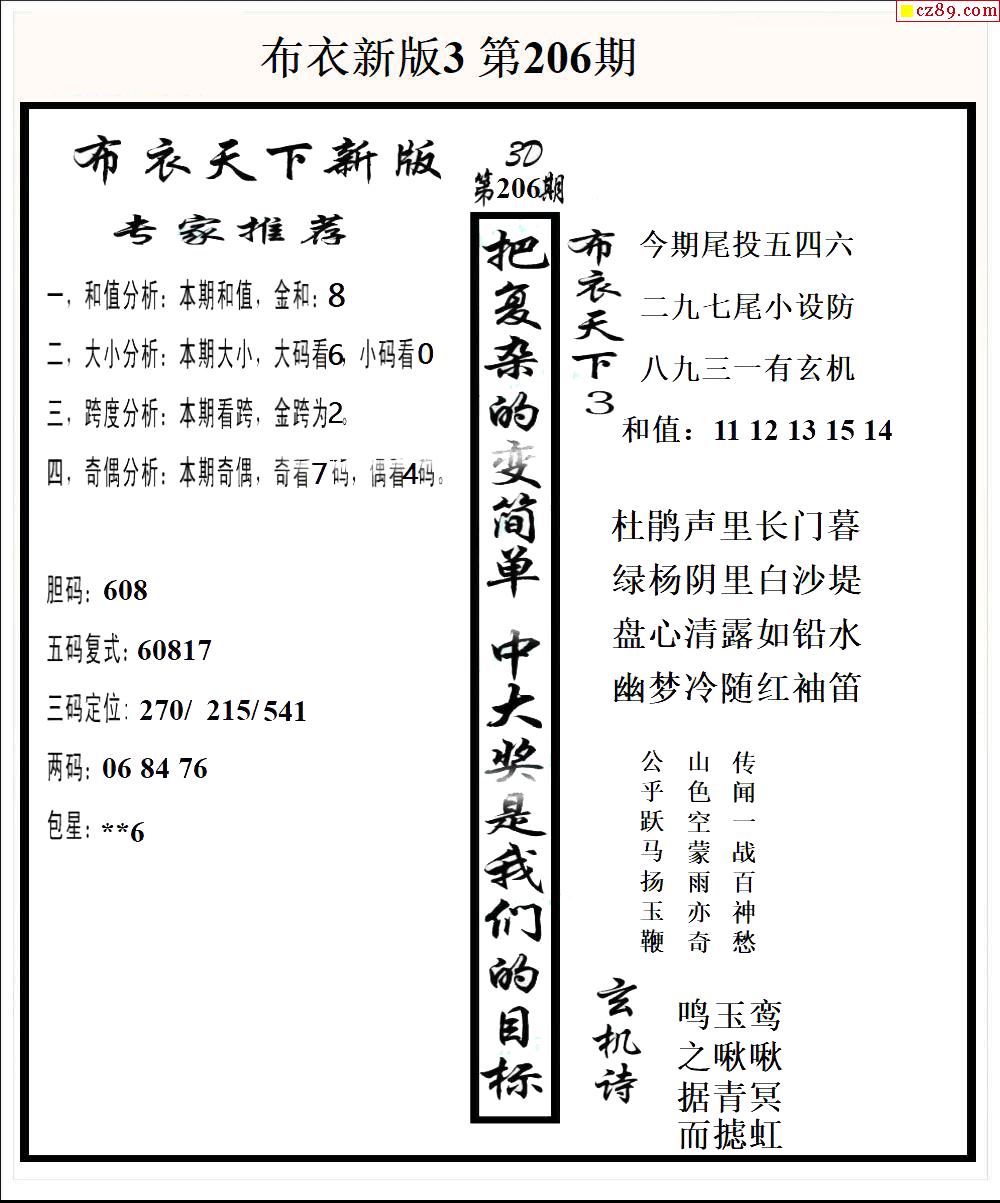 cz89.com
布衣新版3 第206期
布衣天下新版
专家推荐
一，和值分析：本期和值，金和：8
二，大小分析：本期大小，大码看6，小码看0
三，跨度分析：本期看跨，金跨为2。
四，奇偶分析：本期奇偶，奇看7码，偶看4码。
胆码：608
五码复式：60817
三码定位：270/ 215/541
两码：06 84 76
包星：**6
3D
第206期
把复杂的变简单 中大奖是我们的目标
布衣天下3
今期尾投五四六
二九七尾小设防
八九三一有玄机
和值：11 12 13 15 14
杜鹃声里长门暮
绿杨阴里白沙堤
盘心清露如铅水
幽梦冷随红袖笛
传闻一战百神愁
山色空蒙雨亦奇
公乎跃马扬玉鞭
玄机诗
鸣玉鸾
之啾啾
据青冥
而摅虹